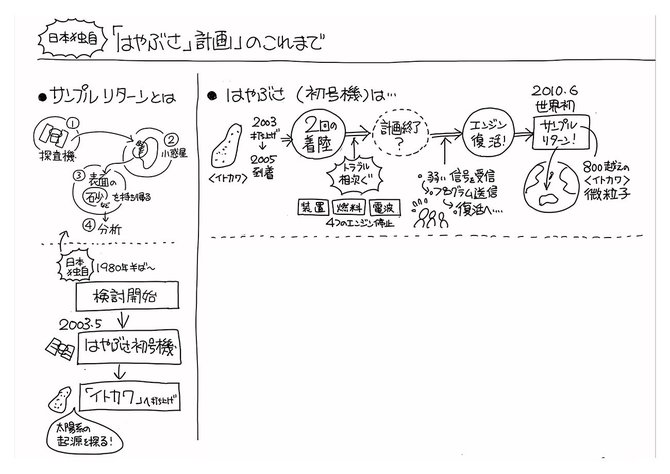 日本独自
「はやぶさ」計画」のこれまで
●サンプルリターンとは
①
探査機
②
小惑星
③
表面の
石砂など
を持ち帰る
④
分析
日本独自
1980年半ば〜
検討開始
2003.5
はやぶさ初号機
「イトカワ」へ打上げ
太陽系の
起源を探る!
●はやぶさ(初号機)は…
〈イトカワ〉
2003
打ち上げ
2005
到着
2回の
着陸
トラブル
相次ぐ
装置 燃料 電波
4つのエンジン停止
計画終了
?
弱い信号を受信
プログラム送信
復活へ…
エンジン
復活!
2010.6
世界初
サンプル
リターン!
800超えの
〈イトカワ〉
微粒子